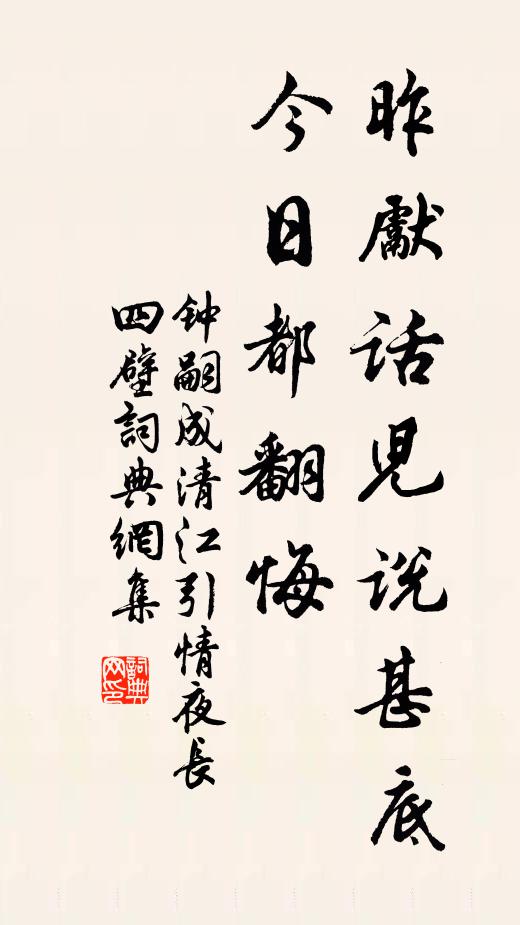 昨獻話兒說甚底
今日都翻悔
钟嗣成清江引情夜長
四壁詞典網集
詞典网印